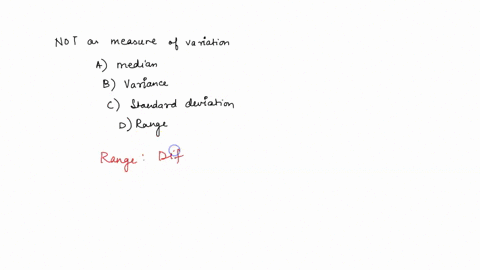 NOT as measure of variation
A) median
B) Variance
C) Standard deviation
D) Range
Range: Dif